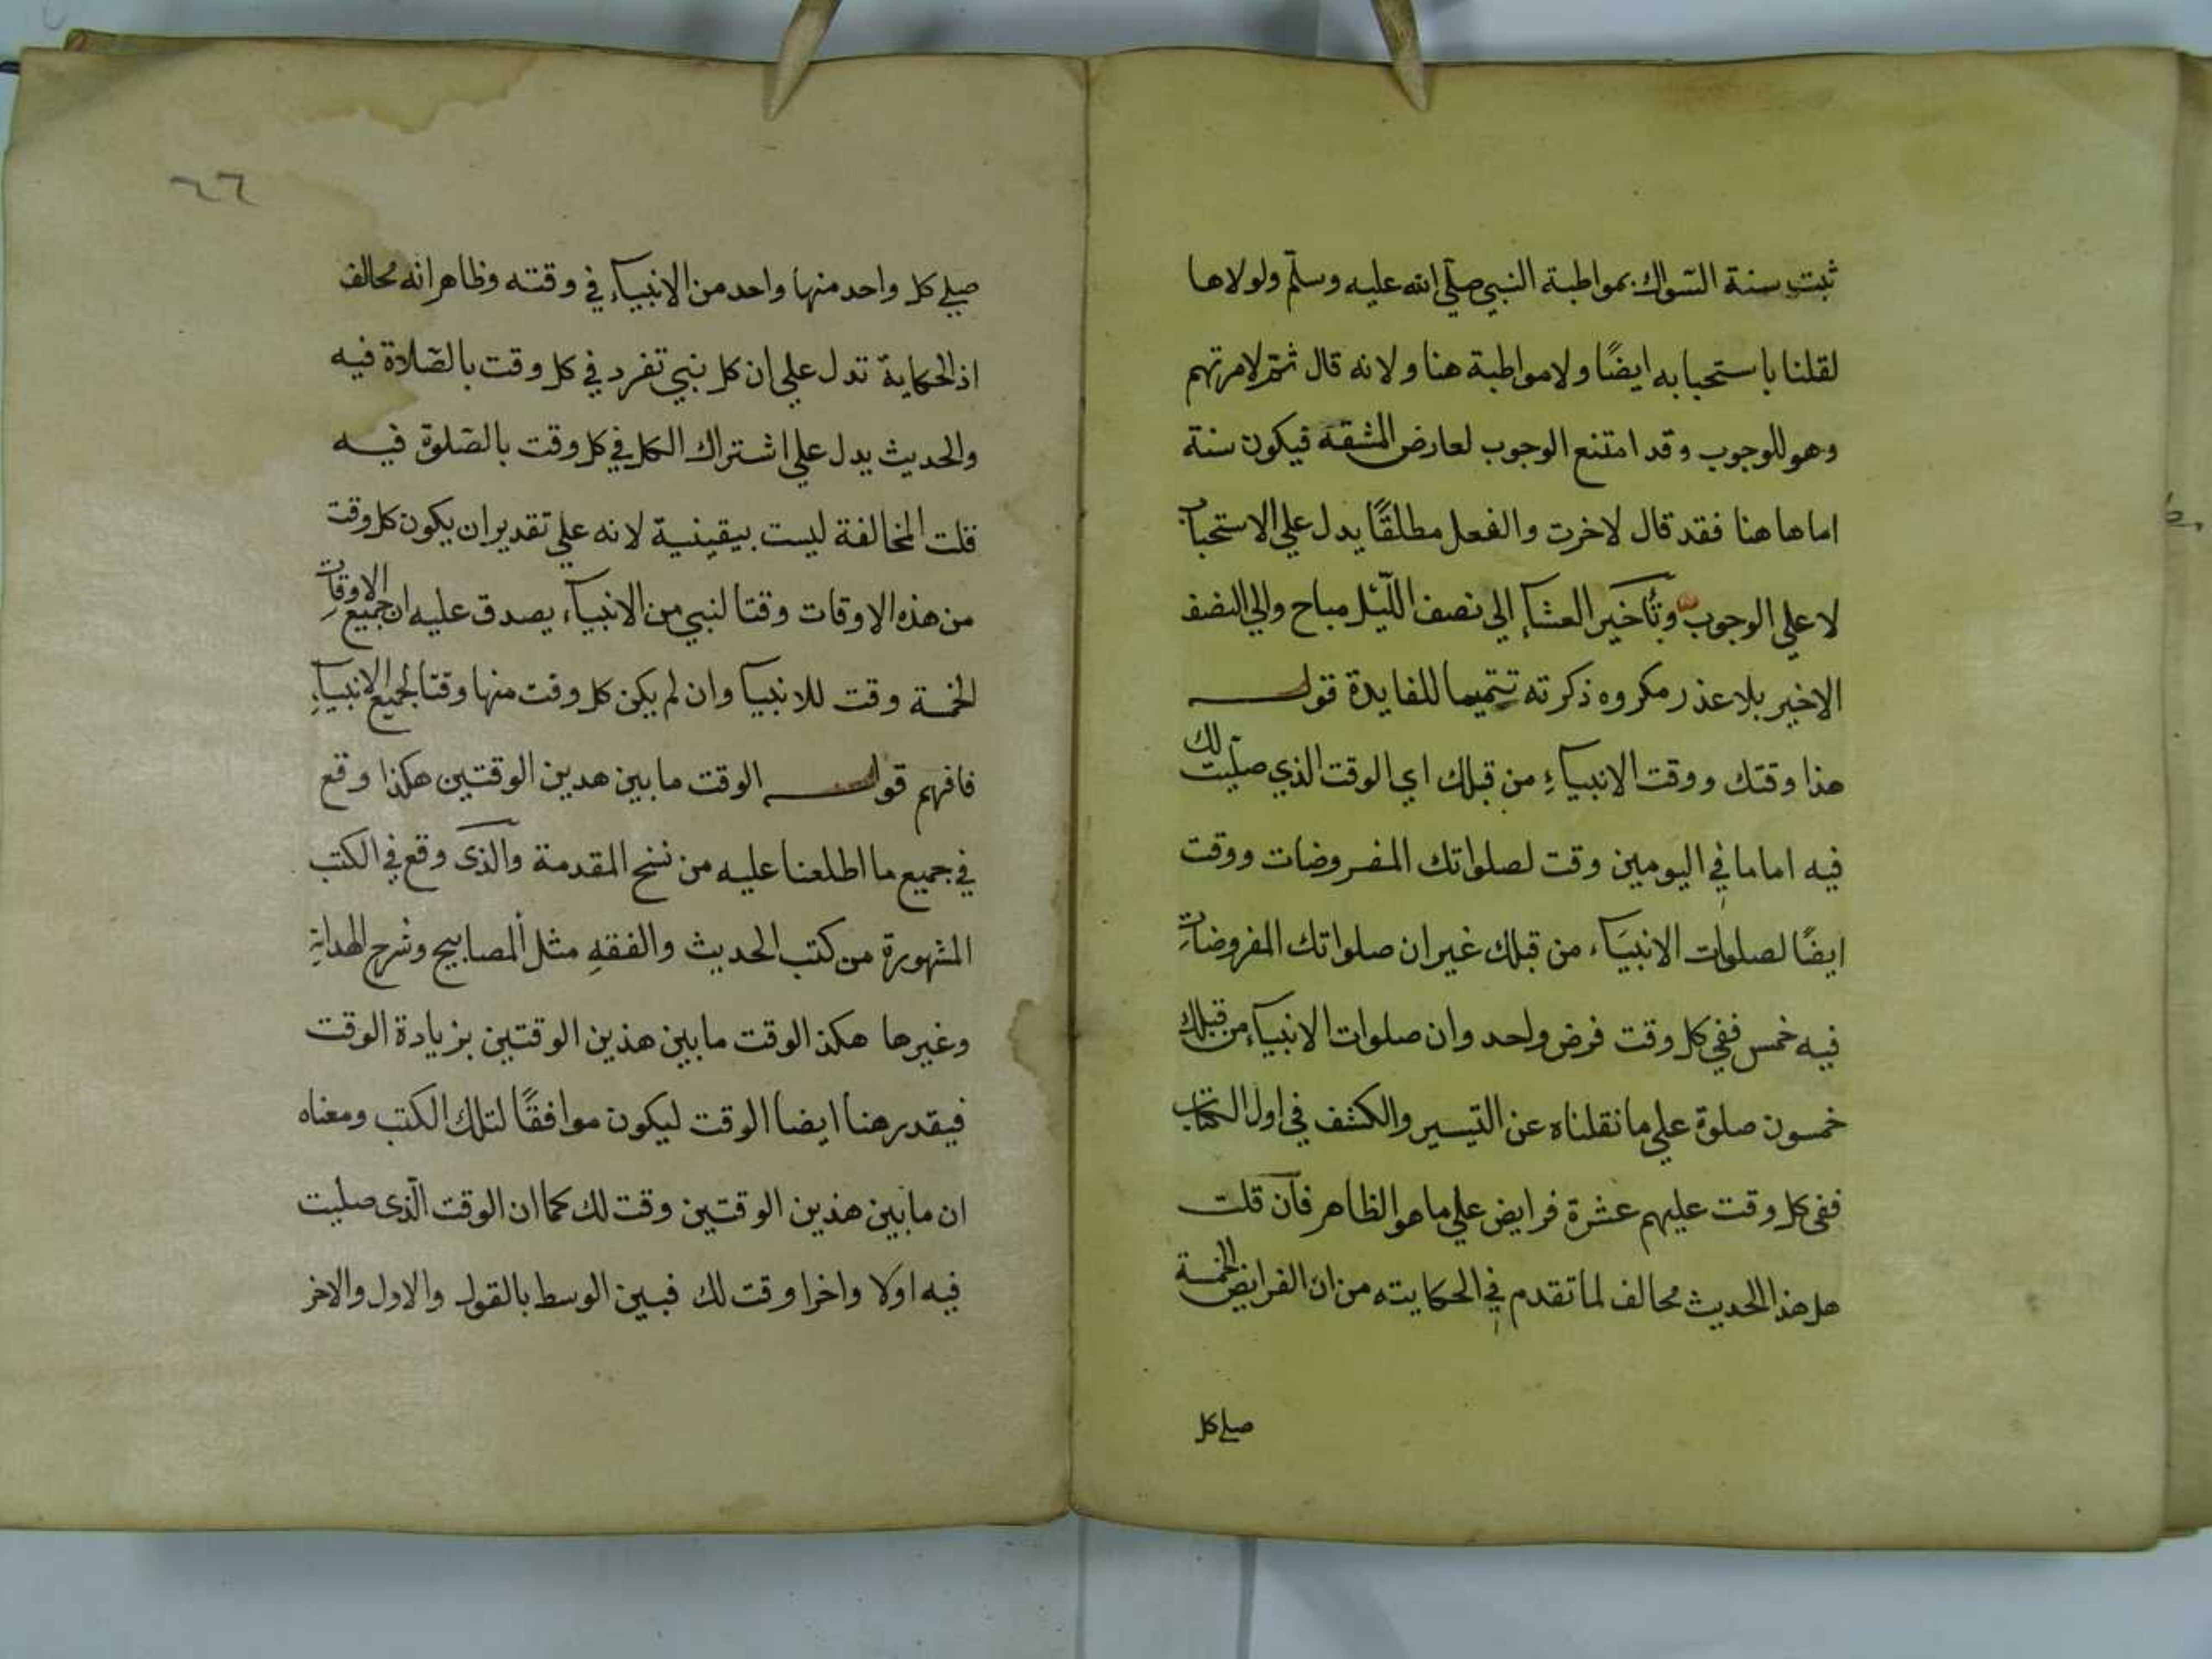 ثبت سنة السّواك بمواطبة النبي صلّي الله عليه وسلّم ولولاها
لقلنا باستحبابه ايضًا ولامواطبة هنا ولانه قال ثمّ لامرتهم
وهو للوجوب وقد امتنع الوجوب لعارض المشقه فيكون سنة
اما هاهنا فقد قال لاخرت والفعل مطلقًا يدل علي الاستحباب
لا علي الوجوب وتأخير العشاء الي نصف اللّيل مباح والي النصف
الاخير بلا عذر مكروه ذكرته تتميما للفايدة قولـــه
هذا وقتك ووقت الانبياء من قبلك اي الوقت الذي صلّيت لك
فيه اماما في اليومين وقت لصلواتك المفروضات ووقت
ايضًا لصلوات الانبيَاء من قبلك غير ان صلواتك المفروضات
فيه خمس ففي كل وقت فرض واحد وان صلوات الانبياء من قبلك
خمسون صلوة علي ما نقلناه عن التيسير والكشف في اول الكتاب
ففي كل وقت عليهم عشرة فرايض علي ما هو الظاهر فان قلت
هل هذا الحديث محالف لما تقدم في الحكايته من ان الفرايض الخمسة
صلي كل
٦٦
صلي كل واحد منها واحد من الانبياء في وقته وظاهر انه محالف
اذ الحكاية تدل علي ان كل نبي تفرد في كل وقت بالصّلاة فيه
والحديث يدل علي اشتراك الكل في كل وقت بالصّلوة فيه
قلت المخالفة ليست بيقينية لانه علي تقدير ان يكون كل وقت
من هذه الاوقات وقتا لنبي من الانبياء يصدق عليه ان جميع الاوقات
الخمسة وقت للانبيا وان لم يكن كل وقت منها وقتا لجميع الانبياء
فافهم قولـــه الوقت ما بين هدين الوقتين هكذا وقع
في جميع ما اطلعنا عليه من نسخ المقدمة والذى وقع في الكتب
المشهورة من كتب الحديث والفقه مثل المصابيح وشرح الهداية
وغيرها هكذ الوقت ما بين هذين الوقتين بزيادة الوقت
فيقدر هنا ايضا الوقت ليكون موافقًا لتلك الكتب ومعناه
ان ما بين هذين الوقتين وقت لك كما ان الوقت الّذى صليت
فيه اولا واخرا وقت لك فبين الوسط بالقول والاول والاخر